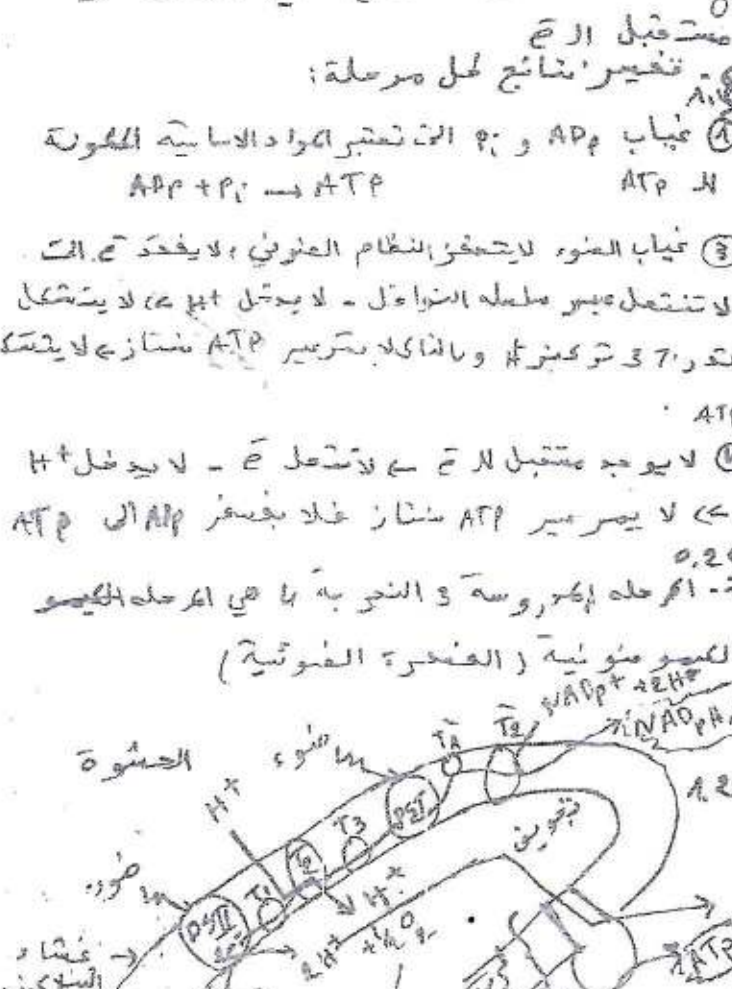 مستقبل الـ e⁻
تفسير نتائج كل مرحلة:
① غياب ADP و Pi التي تعتبر المواد الاساسية المكونة
للـ ATP    ADP + Pi → ATP
③ غياب الضوء لا يتحفز النظام الضوئي، لا يفقد e⁻ التي
لا تنتقل عبر سلسلة النواقل - لا يدخل H+ => لا يتشكل
تدرج في تركيز H+ وبالتالي لا يتم عبر ATP سنتاز => لا يتشكل
ATP
④ لا يوجد مستقبل للـ e⁻ => لا تنتقل e⁻ - لا يدخل H+
=> لا يمر عبر ATP سنتاز فلا يفسفر ADP الى ATP
المرحلة المدروسة في التجربة هي المرحلة
الكيموضوئية (الفسفرة الضوئية)
NADP+ + 2H+
NADPH,
T'1
T'2
الحشوة
ضوء
H+
PSI
T3
T2
تجويف
ضوء
PSII
T1
H+
2H+ + ½O2
غشاء
ATP